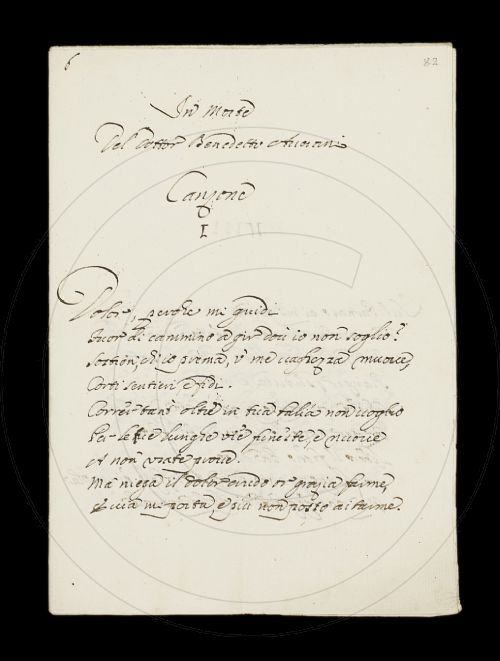 6
82
In Morte
Del Dottor Benedetto
Canzone
I
Dolor, perche mi guidi
fuor di cammino a gir dov' io non soglio?
prima, v' me vaghezza muove,
Corti sentieri e fidi.
Correr tant' oltre in tua balia non voglio
Per le tue lunghe vie, funeste, e nuove
A non usate prove.
Ma niega il dolor grazia farme,
E via mi porta, e più non posso aitarme.